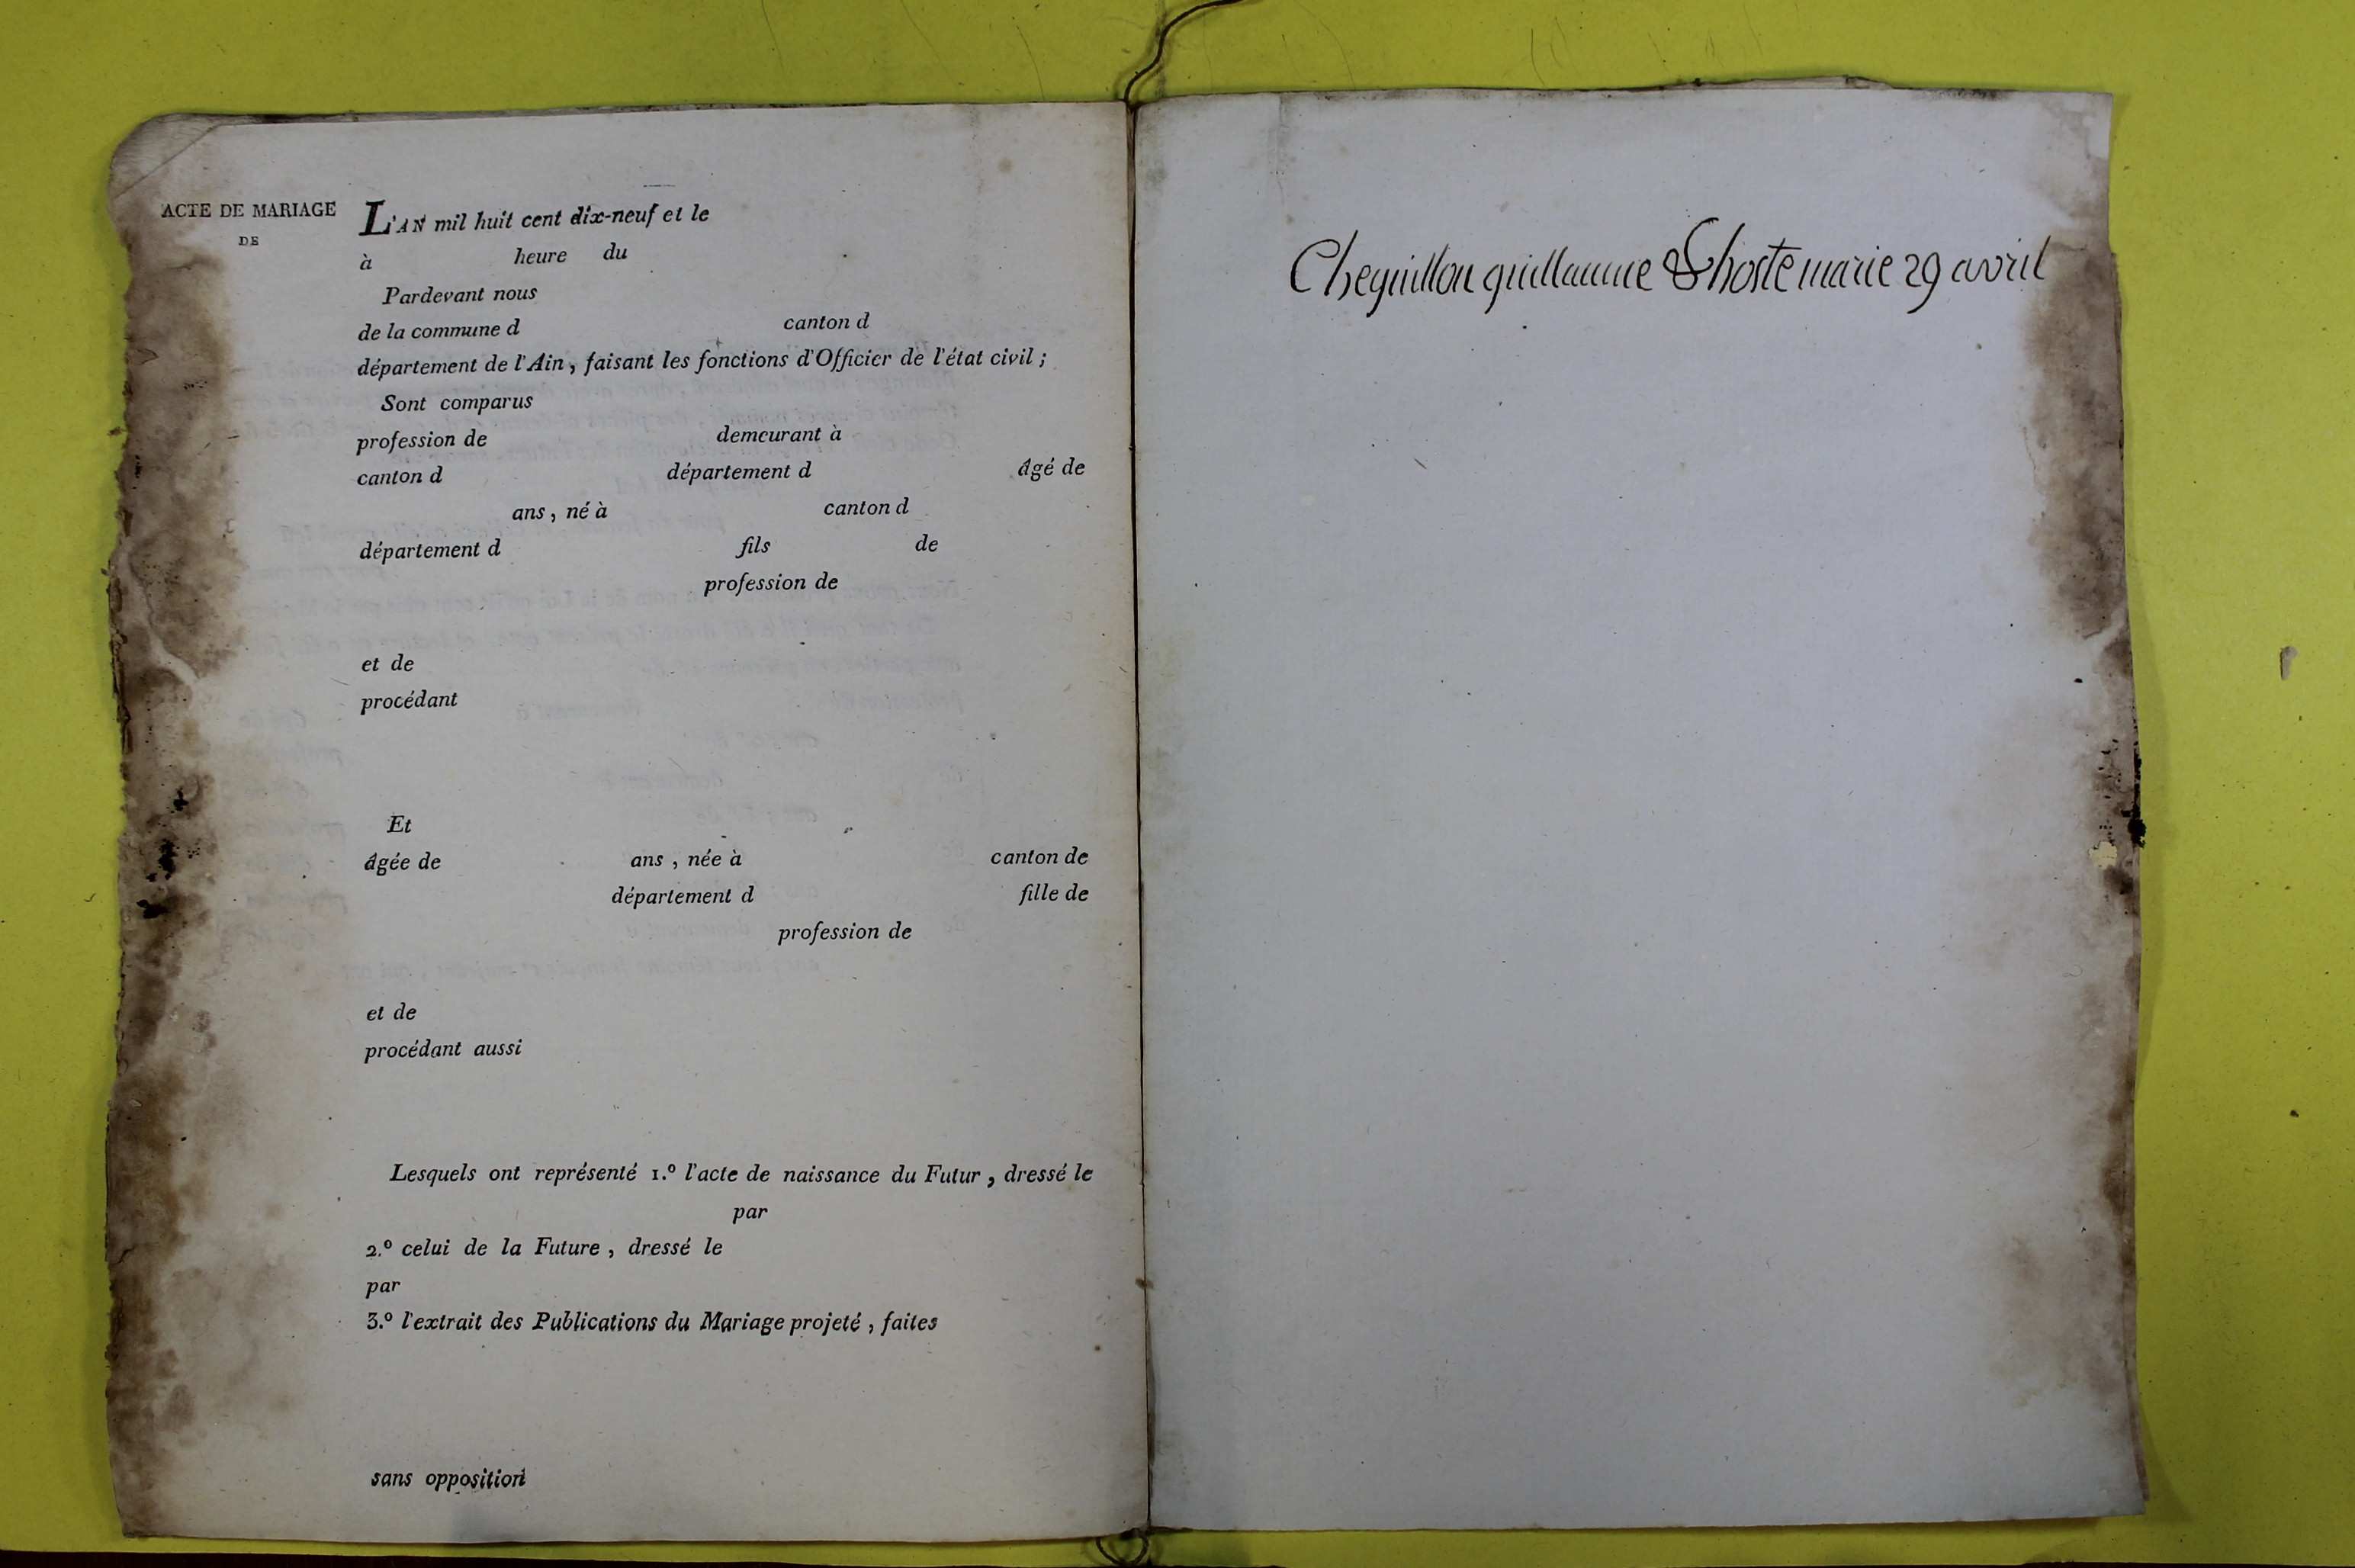 ACTE DE MARIAGE
DE
L'AN mil huit cent dix-neuf et le
à heure du
Pardevant nous
de la commune d canton d
département de l'Ain, faisant les fonctions d'Officier de l'état civil ;
Sont comparus
profession de demeurant à
canton d département d âgé de
ans, né à canton d
département d fils de
profession de
et de
procédant
Et
âgée de ans, née à canton de
département d fille de
profession de
et de
procédant aussi
Lesquels ont représenté 1.º l'acte de naissance du Futur, dressé le
par
2.º celui de la Future, dressé le
par
3.º l'extrait des Publications du Mariage projeté, faites
sans opposition
Cheguillon guillaume & Lhoste marie 29 avril